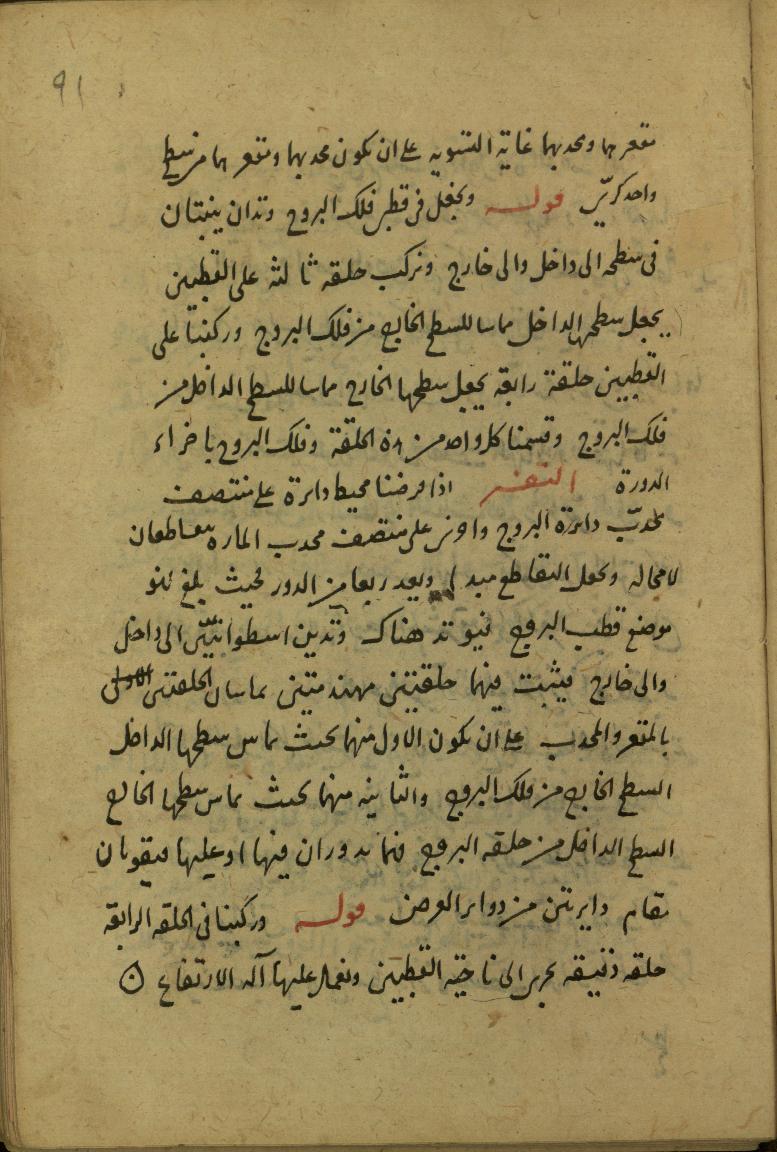 ٩١
مقعرهما ومحدبهما غاية التسويه على ان يكون محدبهما ومقعرهما من سطح
واحد كريّ قوله ونجعل فى قطبى فلك البروج وتدان ينبتان
فى سطحه الى داخل والى خارج ونركب حلقه ثالثه على القطبين
يجعل سطحها الداخل مماسا للسطح الخارج من فلك البروج وركبنا على
القطبين حلقة رابعه يجعل سطحها الخارج مماسا للسطح الداخل من
فلك البروج وقسمنا كل واحد من هذه الحلقة وفلك البروج باجزاء
الدورة التفسير اذا فرضنا محيط دايرة على منتصف
محدّب دايرة البروج واخرى على منتصف محدب الماره يتقاطعان
لا محاله ونجعل التقاطع مبدا ويعد ربعا من الدور بحيث بلغ فهو
موضع قطب البروج فيوتد هناك وتدين اسطوانيّين الى داخل
والى خارج فيثبت فيهما حلقتين مهندمتين يماسان الحلقتين الاولى
بالمقعر والمحدب على ان يكون الاول منهما بحيث يماس سطحها الداخل
السطح الخارج من فلك البروج والثانيه منهما بحيث يماس سطحها الخارج
السطح الداخل من حلقه البروج فهما يدوران فيها او عليها فيقومان
مقام دايرتين من دواير العرض قوله وركبنا فى الحلقه الرابعه
حلقه دقيقه يجرى الى ناحيه القطبين ونعمل عليها آله الارتفاع